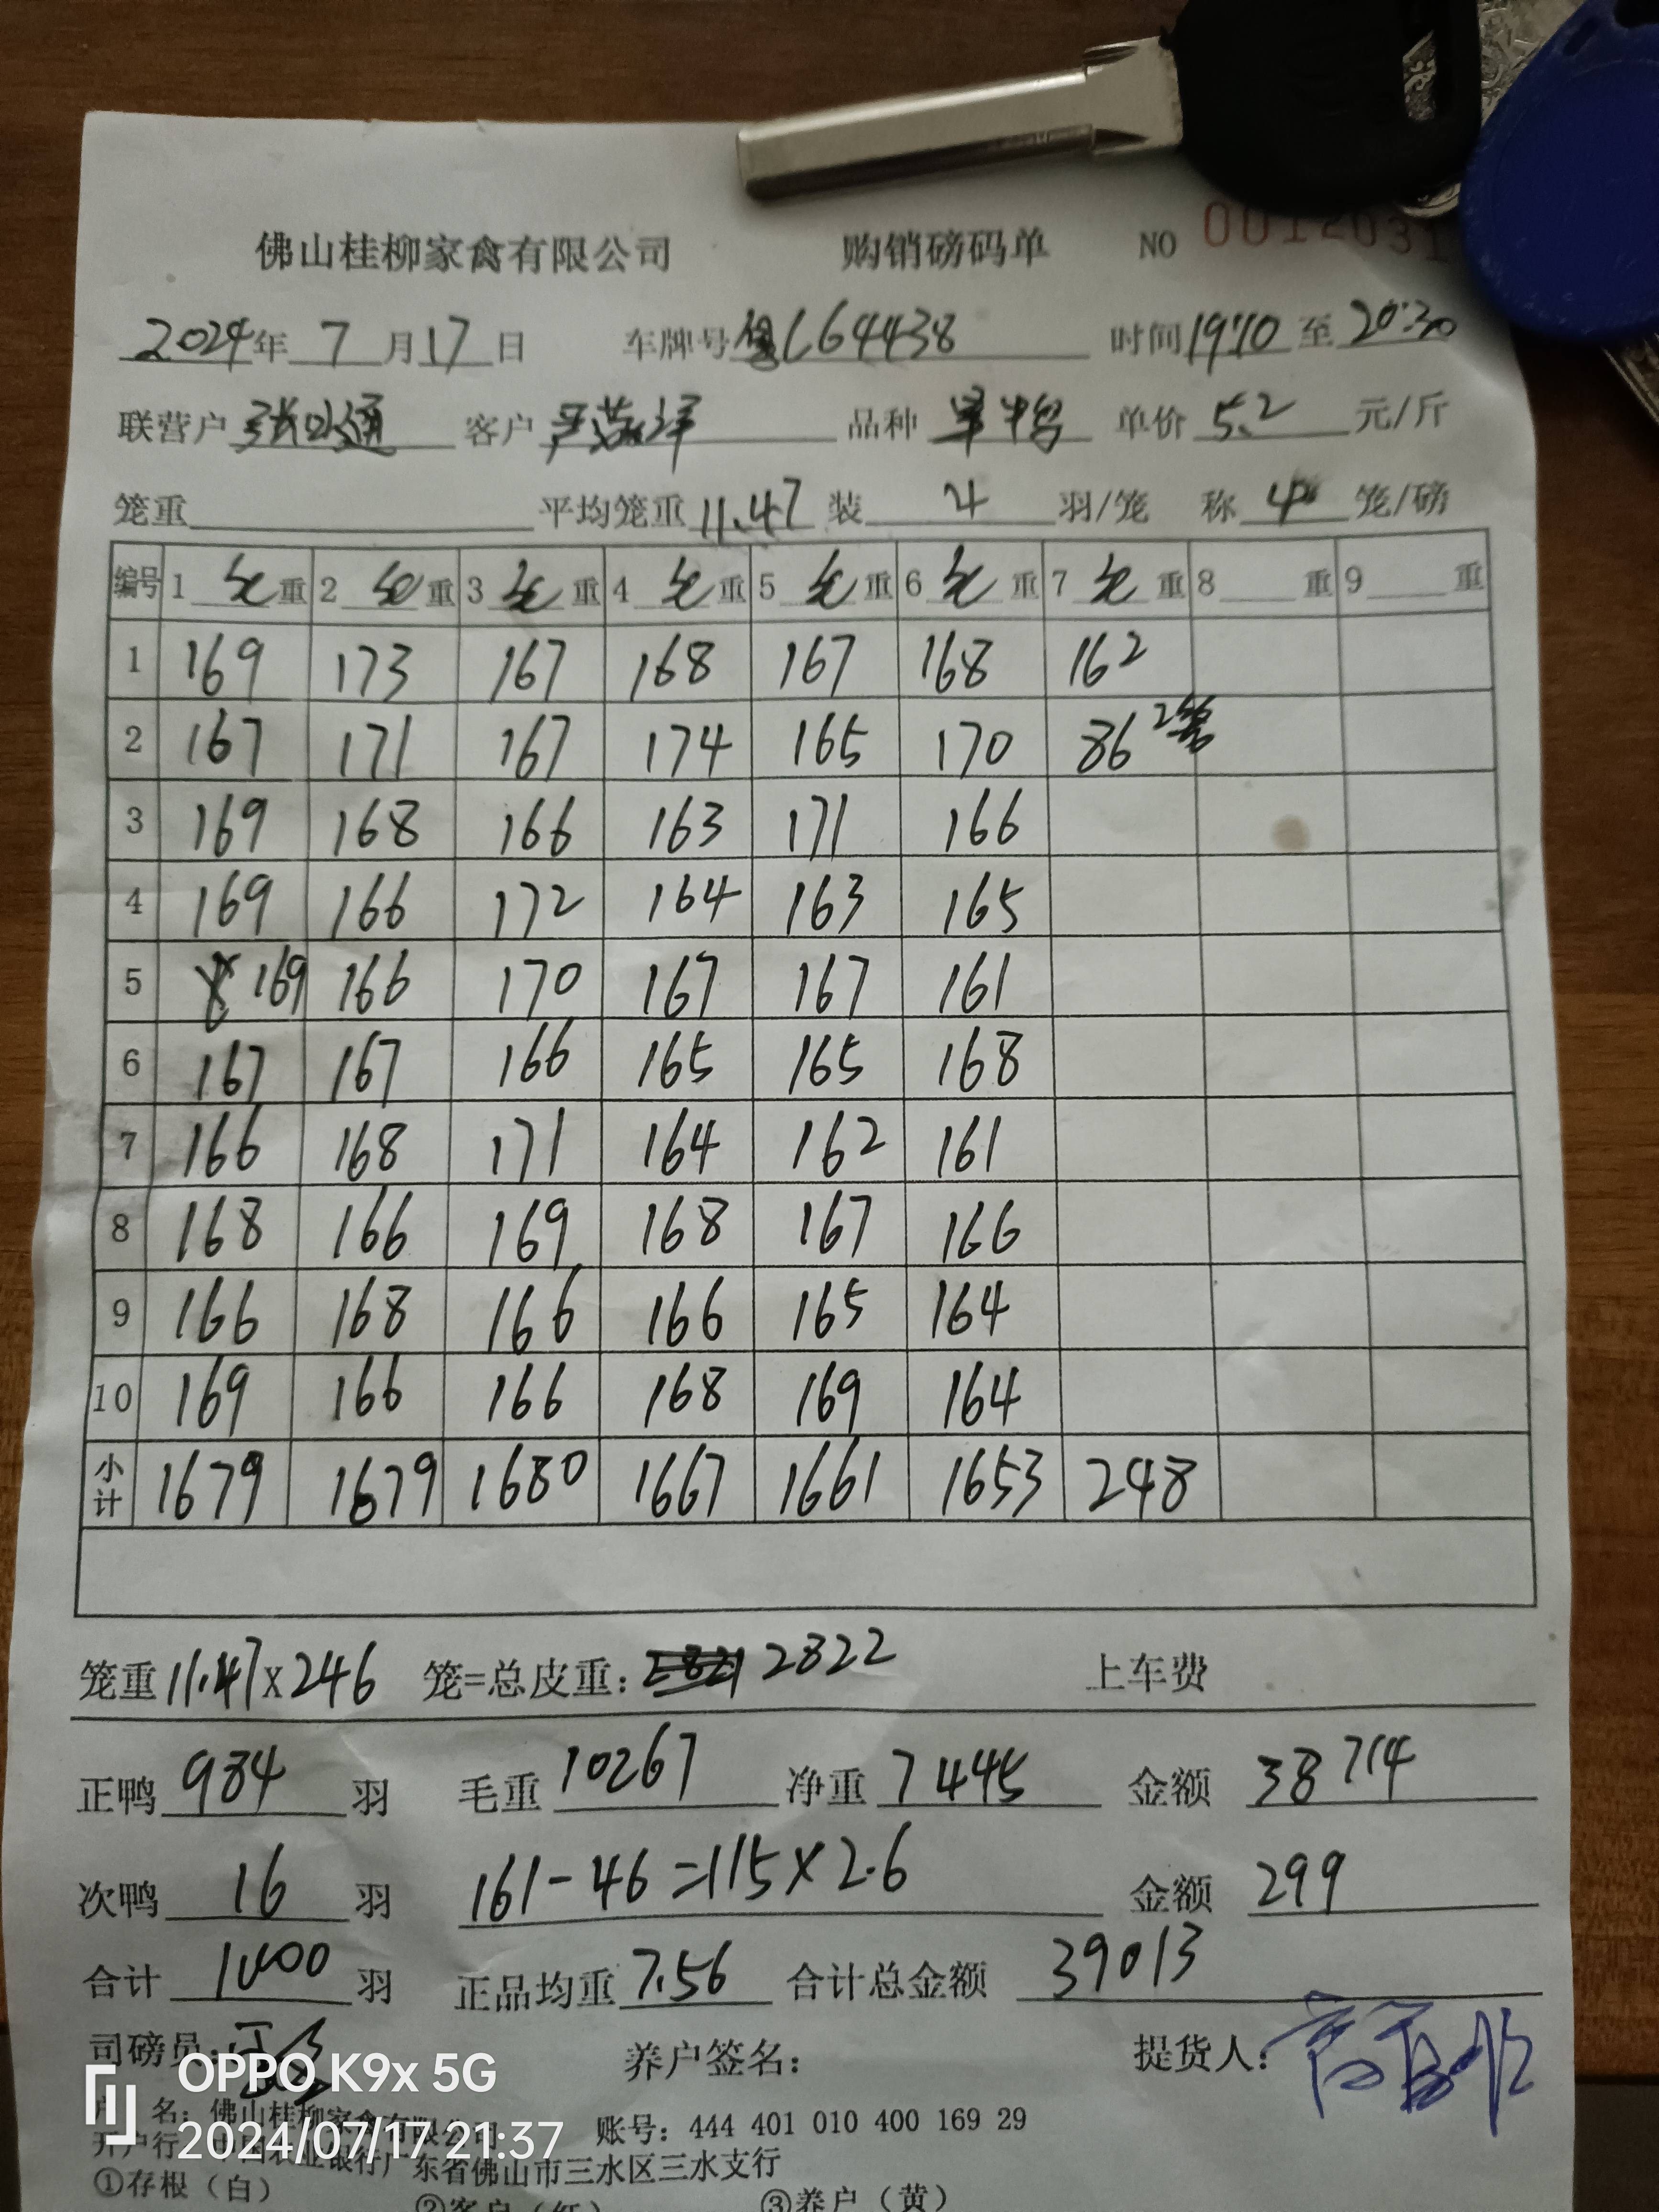 佛山桂柳家禽有限公司 购销磅码单 NO 0012031
2024年 7 月 17 日 车牌号 C64438 时间 19:10 至 20:30
联营户 张 通 客户 严 洋 品种 单价 5.2 元/斤
笼重 平均笼重 11.47 装 4 羽/笼 称 4 笼/磅
编号 1 毛 重 2 毛 重 3 毛 重 4 毛 重 5 毛 重 6 毛 重 7 毛 重 8 重 9 重
1 169 173 167 168 167 168 162
2 167 171 167 174 165 170 86 2笼
3 169 168 166 163 171 166
4 169 166 172 164 163 165
5 169 166 170 167 167 161
6 167 167 166 165 165 168
7 166 168 171 164 162 161
8 168 166 169 168 167 166
9 166 168 166 166 165 164
10 169 166 166 168 169 164
小计 1679 1679 1680 1667 1661 1653 248
笼重 11.47×246 笼=总皮重: 2822 上车费
正鸭 984 羽 毛重 10267 净重 7445 金额 38714
次鸭 16 羽 161-46=115×2.6 金额 299
合计 1000 羽 正品均重 7.56 合计总金额 39013
司磅员: 养户签名: 提货人:
户 名: 佛山桂柳家禽有限公司 账号: 444 401 010 400 169 29
开户行: 中国农业银行广东省佛山市三水区三水支行
①存根(白) ②客户(红) ③养户(黄)
OPPO K9x 5G
2024/07/17 21:37